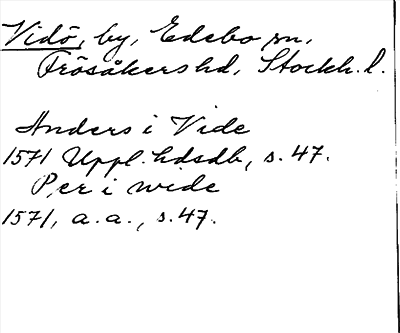 Vidö, by, Edebo sn,
Frösåkers hd, Stockh. l.
Anders i Vide
1571 Uppl. hdsdb, s. 47.
Per i wide
1571, a. a., s. 47.